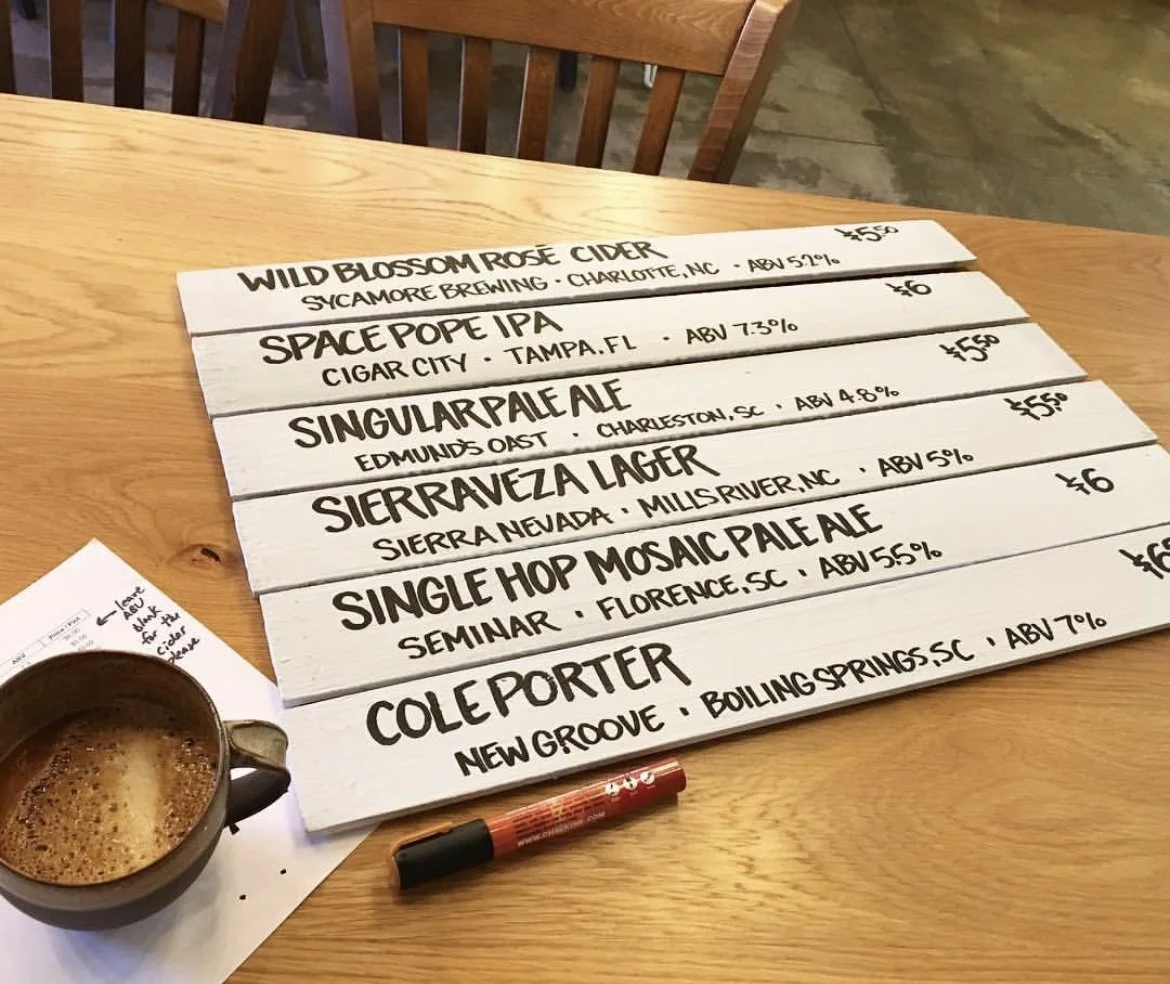 WILD BLOSSOM ROSÉ CIDER $5.50
SYCAMORE BREWING · CHARLOTTE, NC · ABV 5.2%
SPACE POPE IPA $6
CIGAR CITY · TAMPA, FL · ABV 7.3%
SINGULAR PALE ALE $5.50
EDMUND'S OAST · CHARLESTON, SC · ABV 4.8%
SIERRAVEZA LAGER $5.50
SIERRA NEVADA · MILLS RIVER, NC · ABV 5%
SINGLE HOP MOSAIC PALE ALE $6
SEMINAR · FLORENCE, SC · ABV 5.5%
COLE PORTER
NEW GROOVE · BOILING SPRINGS, SC · ABV 7%
← leave
ABV
blank
for the
cider
please
ABV
Price/Pint